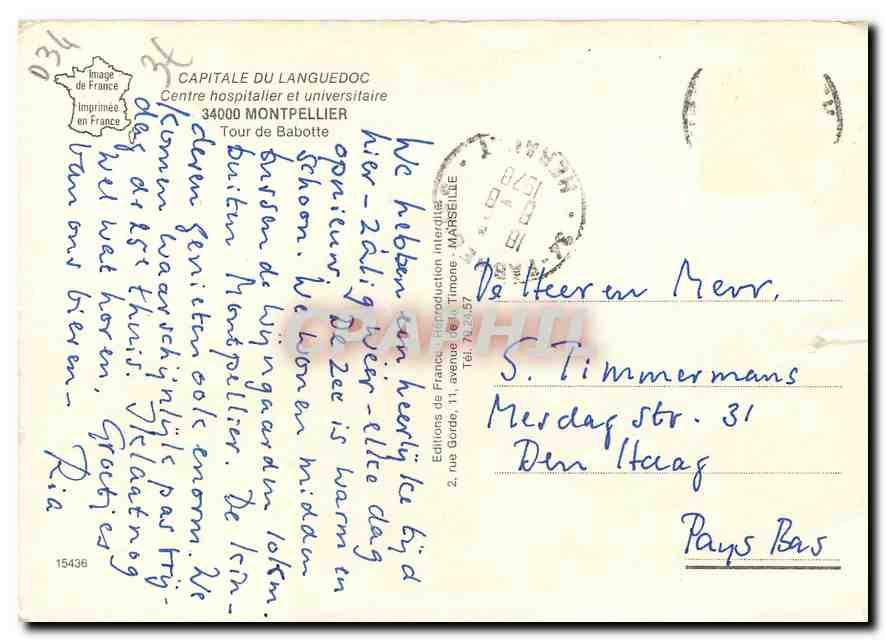 034
3€
Image
de France
Imprimée
en France
CAPITALE DU LANGUEDOC
Centre hospitalier et universitaire
34000 MONTPELLIER
Tour de Babotte
We hebben een heerlijke tijd
hier - zalig weer - elke dag
opnieuw. De zee is warm en
schoon. We wonen midden
tussen de wijngaarden 10 km.
buiten Montpellier. De kin-
deren genieten ook enorm. We
komen waarschijnlijk pas vrij-
dag de 25e thuis. Ik laat nog
wel wat horen. Groetjes
van ons vieren -
Ria
15436
Editions de France - Réproduction interdite
2, rue Gorde, 11, avenue de la Timone - MARSEILLE
Tél. 79.24.57
18
8 - 8
1978
CPAPHIL
De Heer en Mevr.
S. Timmermans
Mesdag str. 31
Den Haag
Pays Bas